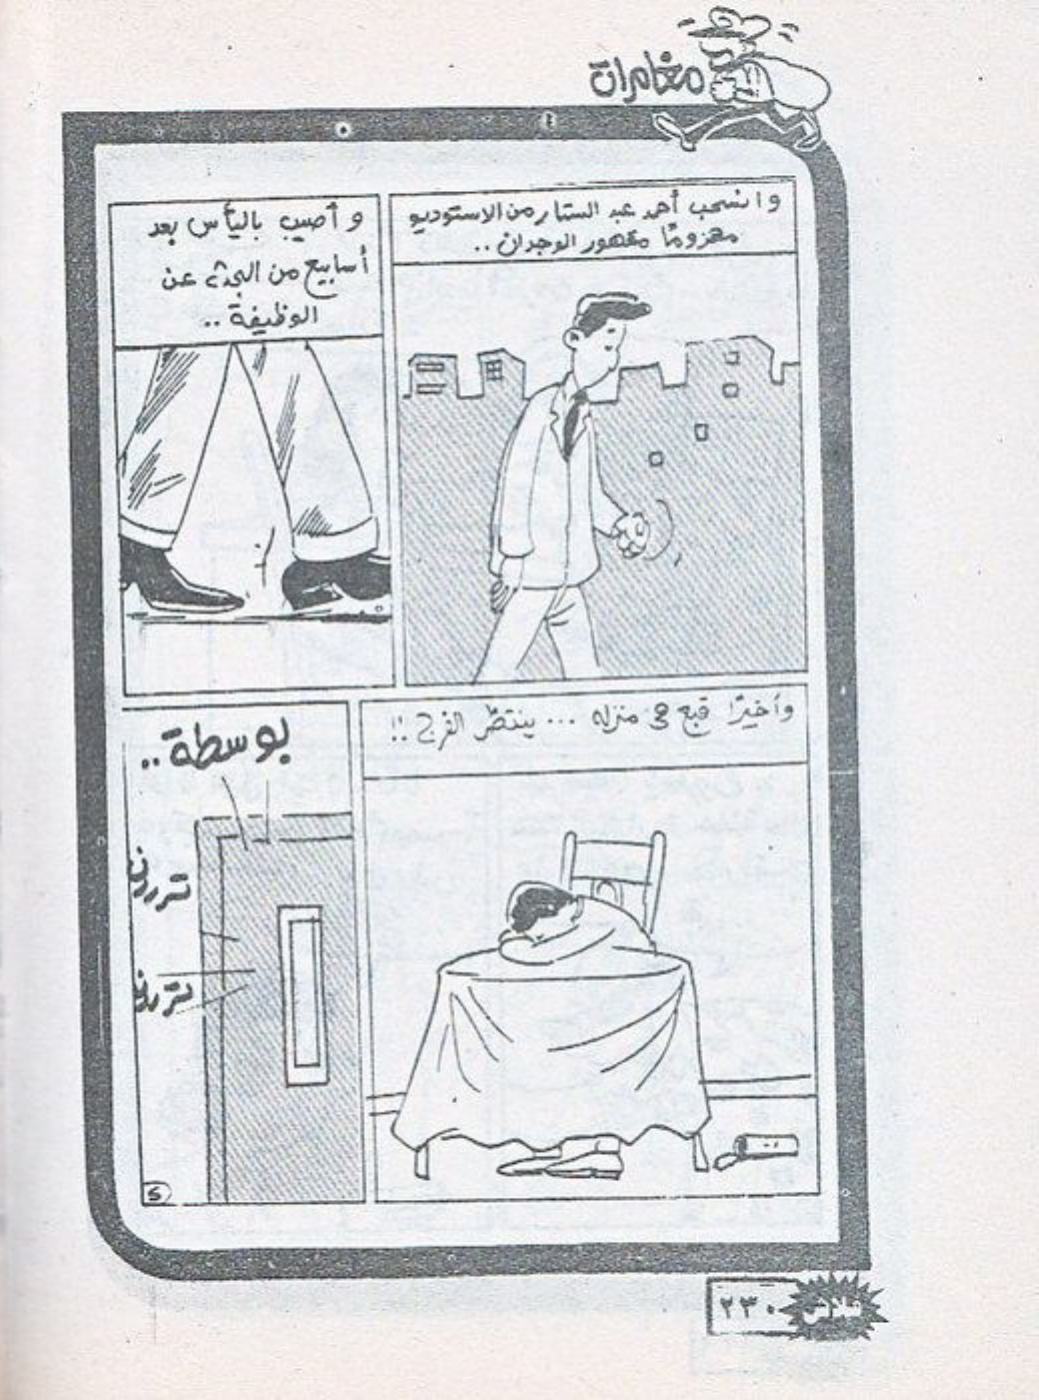 مغامرات
وانسحب أحمد عبد الستار من الاستوديو
مهزومًا مقهور الوجدان ..
وأصيب باليأس بعد
أسابيع من البحث عن
الوظيفة ..
وأخيرًا قبع في منزله ... ينتظر الفرج !!
بوسطة ..
تررررن
تررررن
فلاش
٢٣٠